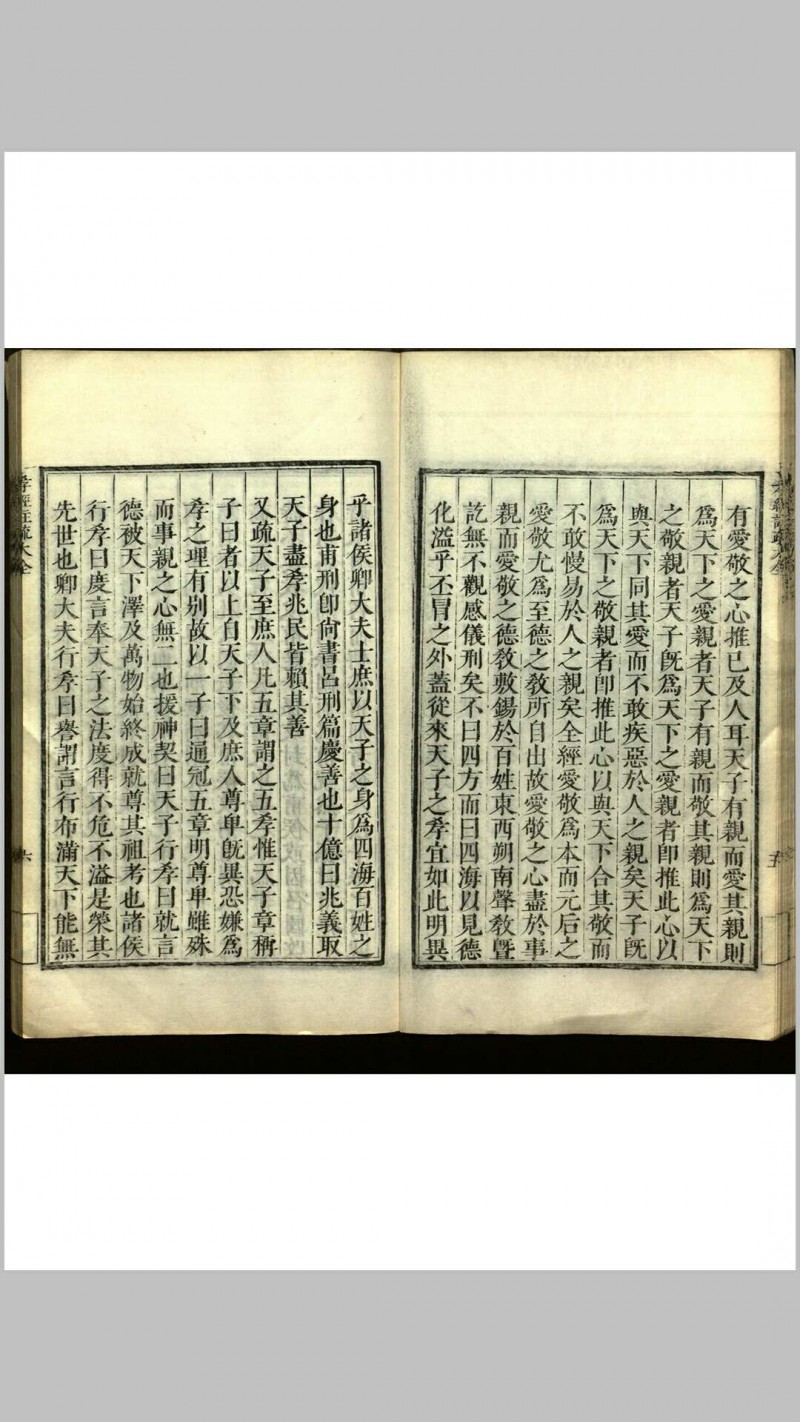 有愛敬之心推已及人耳天子有親而愛其親則
爲天下之愛親者天子有親而敬其親則爲天下
之敬親者天子旣爲天下之愛親者卽推此心以
與天下同其愛而不敢疾惡於人之親矣天子旣
爲天下之敬親者卽推此心以與天下合其敬而
不敢慢易於人之親矣全經愛敬爲本而元后之
愛敬尤爲至德之敎所自出故愛敬之心盡於事
親而愛敬之德敎敷錫於百姓東西朔南聲敎曁
訖無不觀感儀刑矣不曰四方而曰四海以見德
化溢乎丕冒之外蓋從來天子之孝宜如此明異
五
乎諸侯卿大夫士庶以天子之身爲四海百姓之
身也甫刑卽尚書呂刑篇慶善也十億曰兆義取
天子盡孝兆民皆賴其善
又疏天子至庶人凡五章謂之五孝惟天子章稱
子曰者以上自天子下及庶人尊卑旣異恐嫌爲
孝之理有别故以一子曰通冠五章明尊卑雖殊
而事親之心無二也援神契曰天子行孝曰就言
德被天下澤及萬物始終成就尊其祖考也諸侯
行孝曰度言奉天子之法度得不危不溢是榮其
先世也卿大夫行孝曰譽謂言行布滿天下能無
孝經注疏大全
六